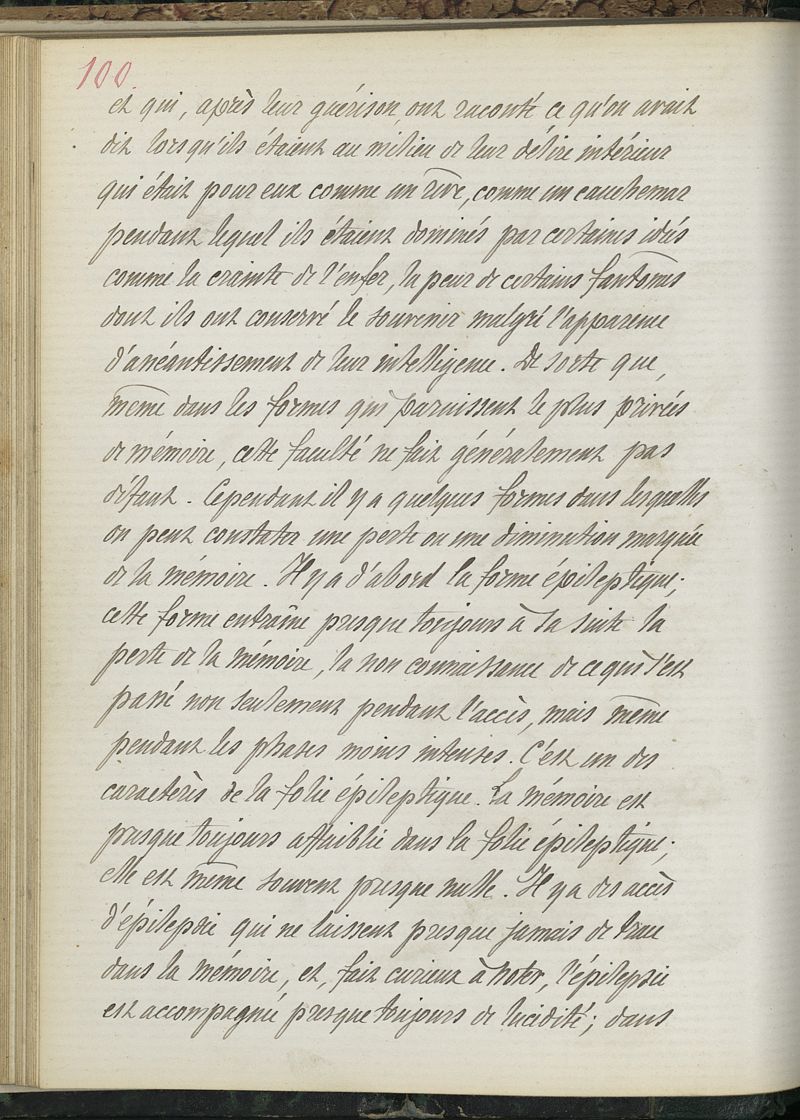 100
et qui, après leur guérison, ont raconté ce qu'on avait
dit lorsqu'ils étaient au milieu de leur délire intérieur
qui était pour eux comme un rêve, comme un cauchemar
pendant lequel ils étaient dominés par certaines idées
comme la crainte de l'enfer, la peur de certains fantômes
dont ils ont conservé le souvenir malgré l'apparence
d'anéantissement de leur intelligence. De sorte que,
même dans les formes qui paraissent le plus privées
de mémoire, cette faculté ne fait généralement pas
défaut. Cependant il y a quelques formes dans lesquelles
on peut constater une perte ou une diminution marquée
de la mémoire. Il y a d'abord la forme épileptique;
cette forme entraîne presque toujours à sa suite la
perte de la mémoire, la non connaissance de ce qui s'est
passé non seulement pendant l'accès, mais même
pendant les phases moins intenses. C'est un des
caractères de la folie épileptique. La mémoire est
presque toujours affaiblie dans la folie épileptique;
elle est même souvent presque nulle. Il y a des accès
d'épilepsie qui ne laissent presque jamais de trace
dans la mémoire, et, fait curieux à noter, l'épilepsie
est accompagnée presque toujours de lucidité; dans